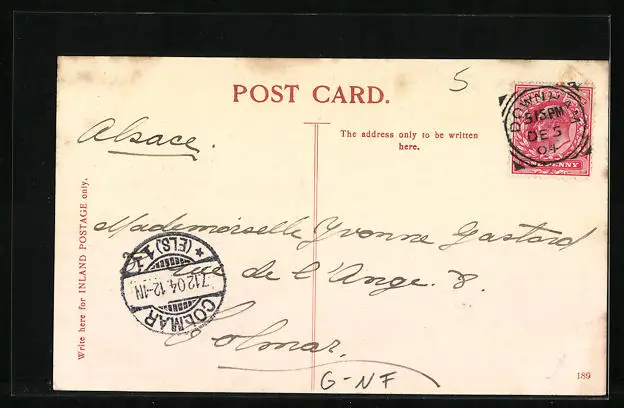 5
POST CARD.
The address only to be written
here.
Alsace.
Write here for INLAND POSTAGE only.
DOWNHAM
515PM
DE 5
04
PENNY
Mademoiselle Yvonne Gastard
rue de l'Ange. 8.
Colmar.
COLMAR
7.12.04.12-1N
* (ELS) 1
G-NF
189